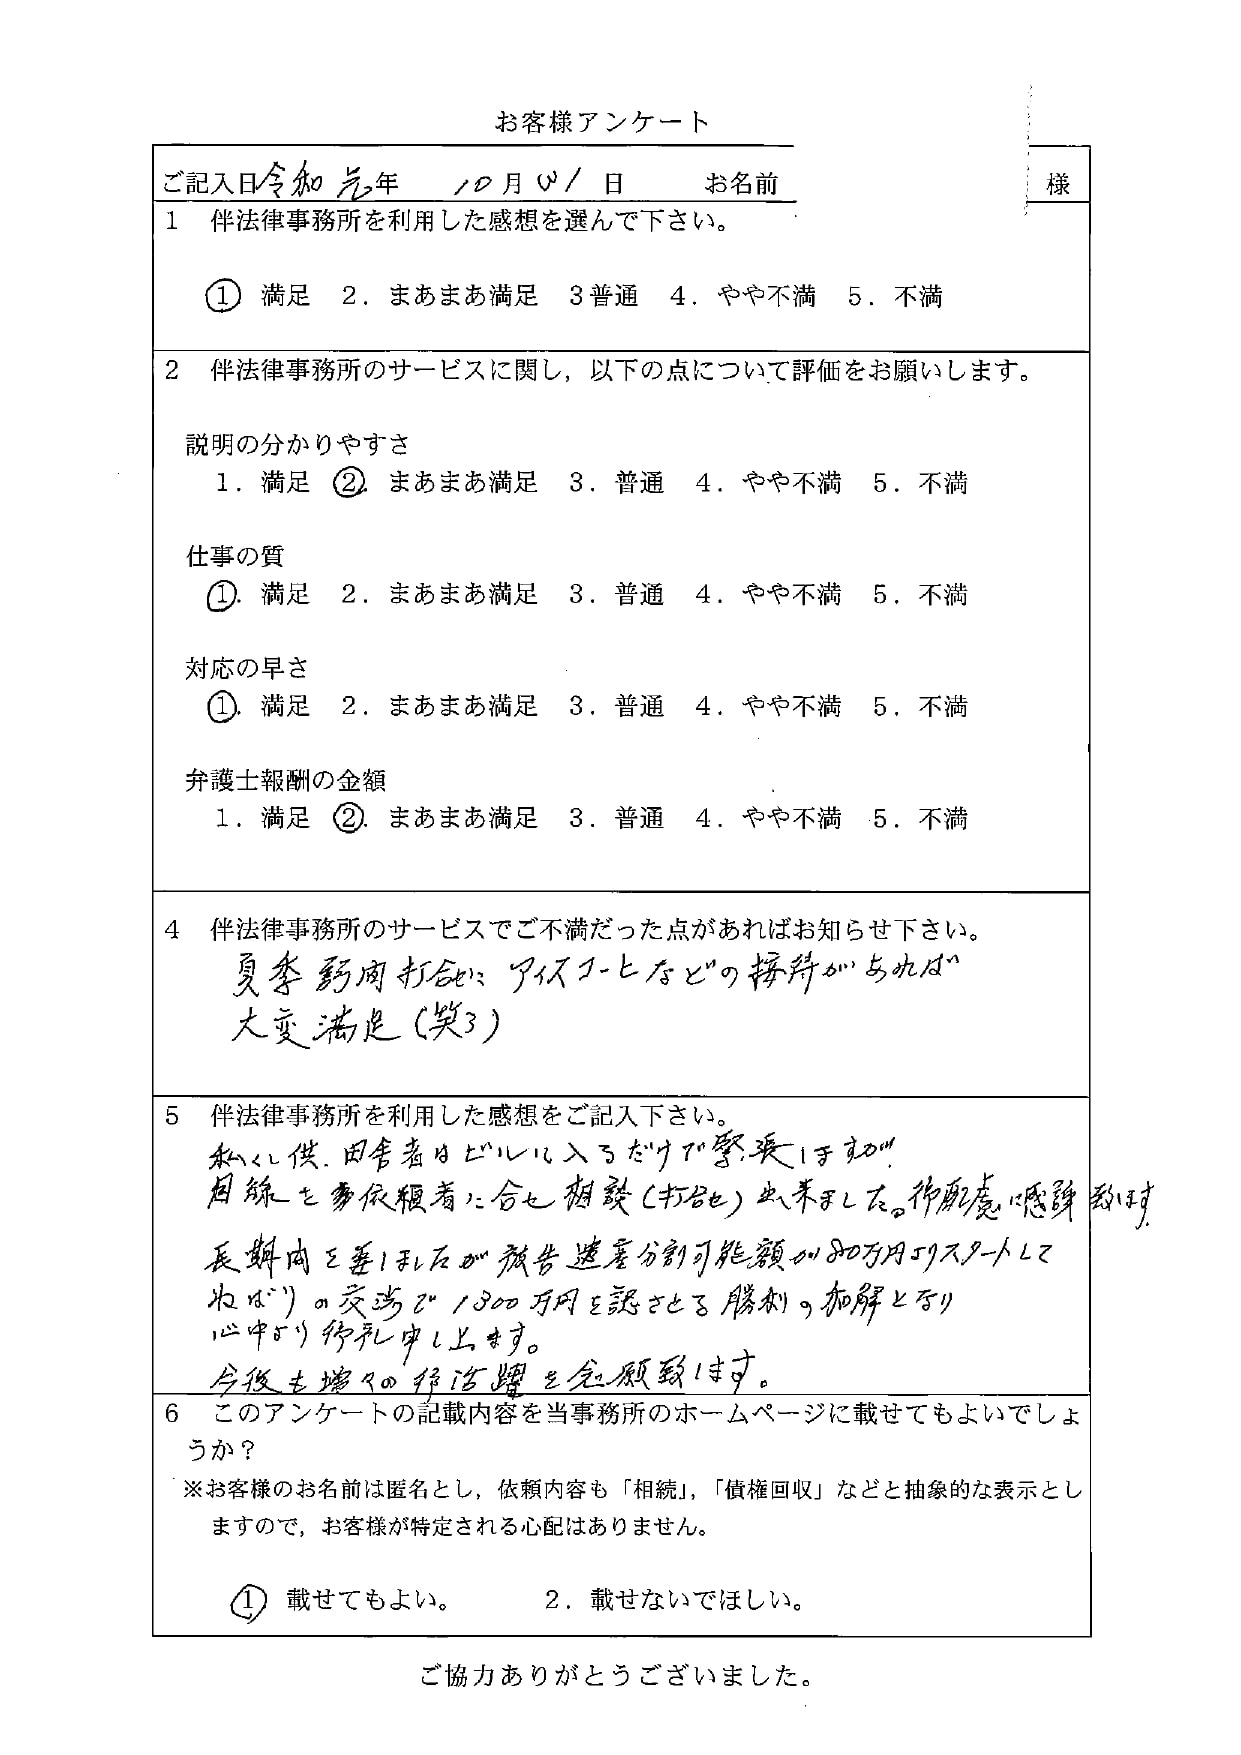 お客様アンケート
ご記入日令和元年 10月31日 お名前 様
1 伴法律事務所を利用した感想を選んで下さい。
① 満足 2. まあまあ満足 3普通 4. やや不満 5. 不満
2 伴法律事務所のサービスに関し，以下の点について評価をお願いします。
説明の分かりやすさ
1. 満足 ②. まあまあ満足 3. 普通 4. やや不満 5. 不満
仕事の質
①. 満足 2. まあまあ満足 3. 普通 4. やや不満 5. 不満
対応の早さ
①. 満足 2. まあまあ満足 3. 普通 4. やや不満 5. 不満
弁護士報酬の金額
1. 満足 ②. まあまあ満足 3. 普通 4. やや不満 5. 不満
4 伴法律事務所のサービスでご不満だった点があればお知らせ下さい。
夏季訪問打合せに アイスコーヒなどの接待があれば
大変満足（笑う）
5 伴法律事務所を利用した感想をご記入下さい。
私くし供、田舎者はビルに入るだけで緊張しますが
目線を依頼者に合せ相談（打合せ）出来ました。御配慮に感謝致します
長期間を要しましたが被告遺産分割可能額が80万円よりスタートして
ねばりの交渉で1300万円を認させる勝利の和解となり
心中より御礼申し上ます。
今後も増々の御活躍を念願致します。
6 このアンケートの記載内容を当事務所のホームページに載せてもよいでしょ
うか？
※お客様のお名前は匿名とし，依頼内容も「相続」，「債権回収」などと抽象的な表示とし
ますので，お客様が特定される心配はありません。
① 載せてもよい。 2. 載せないでほしい。
ご協力ありがとうございました。